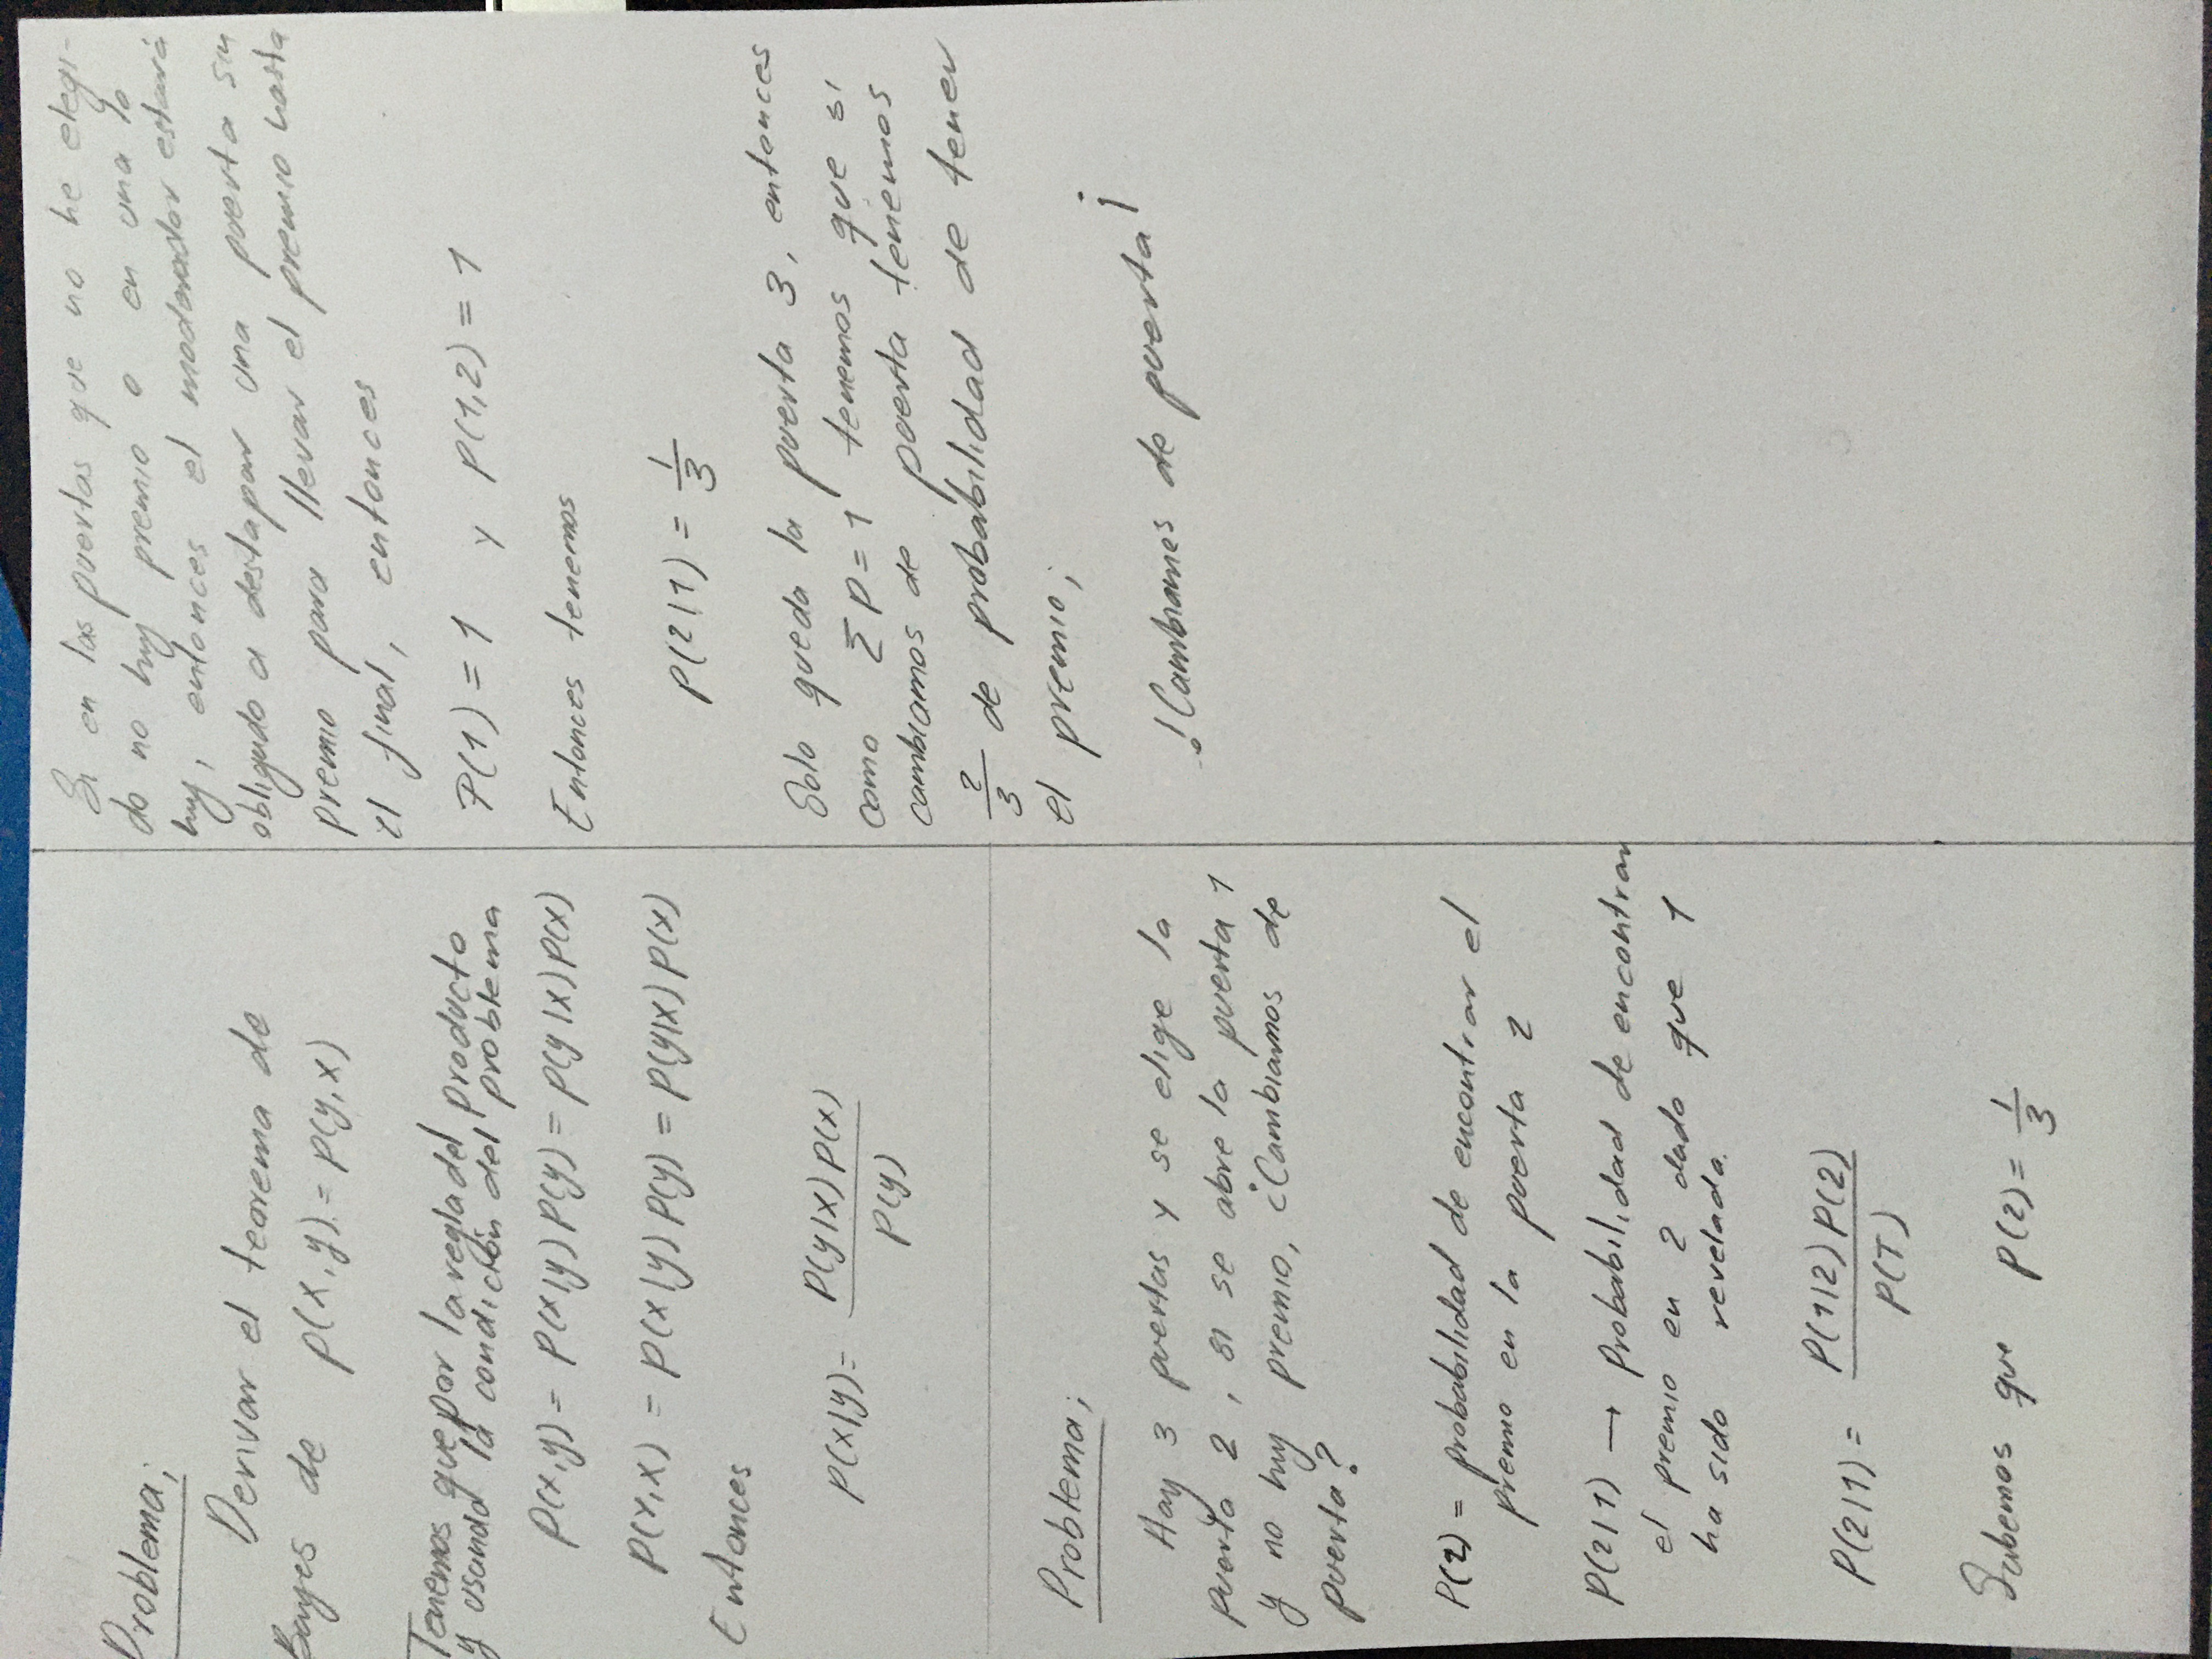 Problema;
Derivar el teorema de
Bayes de p(x,y) = p(y,x)
Tenemos que por la regla del producto
y usando la condición del problema
p(x,y) = p(x|y) p(y) = p(y|x) p(x)
p(y,x) = p(x|y) p(y) = p(y|x) p(x)
Entonces
p(x|y) = p(y|x) p(x) / p(y)
Problema;
Hay 3 puertas y se elige la
puerta 2, si se abre la puerta 1
y no hay premio, ¿Cambiamos de
puerta?
P(2) = probabilidad de encontrar el
premio en la puerta 2
P(2|1) → probabilidad de encontrar
el premio en 2 dado que 1
ha sido revelada.
P(2|1) = P(1|2) P(2) / P(T)
Sabemos que p(2) = 1/3
Si en las puertas que no he elegi-
do no hay premio o en una lo
hay, entonces el moderador estará
obligado a destapar una puerta sin
premio para llevar el premio hasta
el final, entonces
P(1) = 1 y p(1,2) = 1
Entonces tenemos
p(2|1) = 1/3
Solo queda la puerta 3, entonces
como Σp = 1 tenemos que si
cambiamos de puerta tenemos
2/3 de probabilidad de tener
el premio;
!Cambiamos de puerta¡